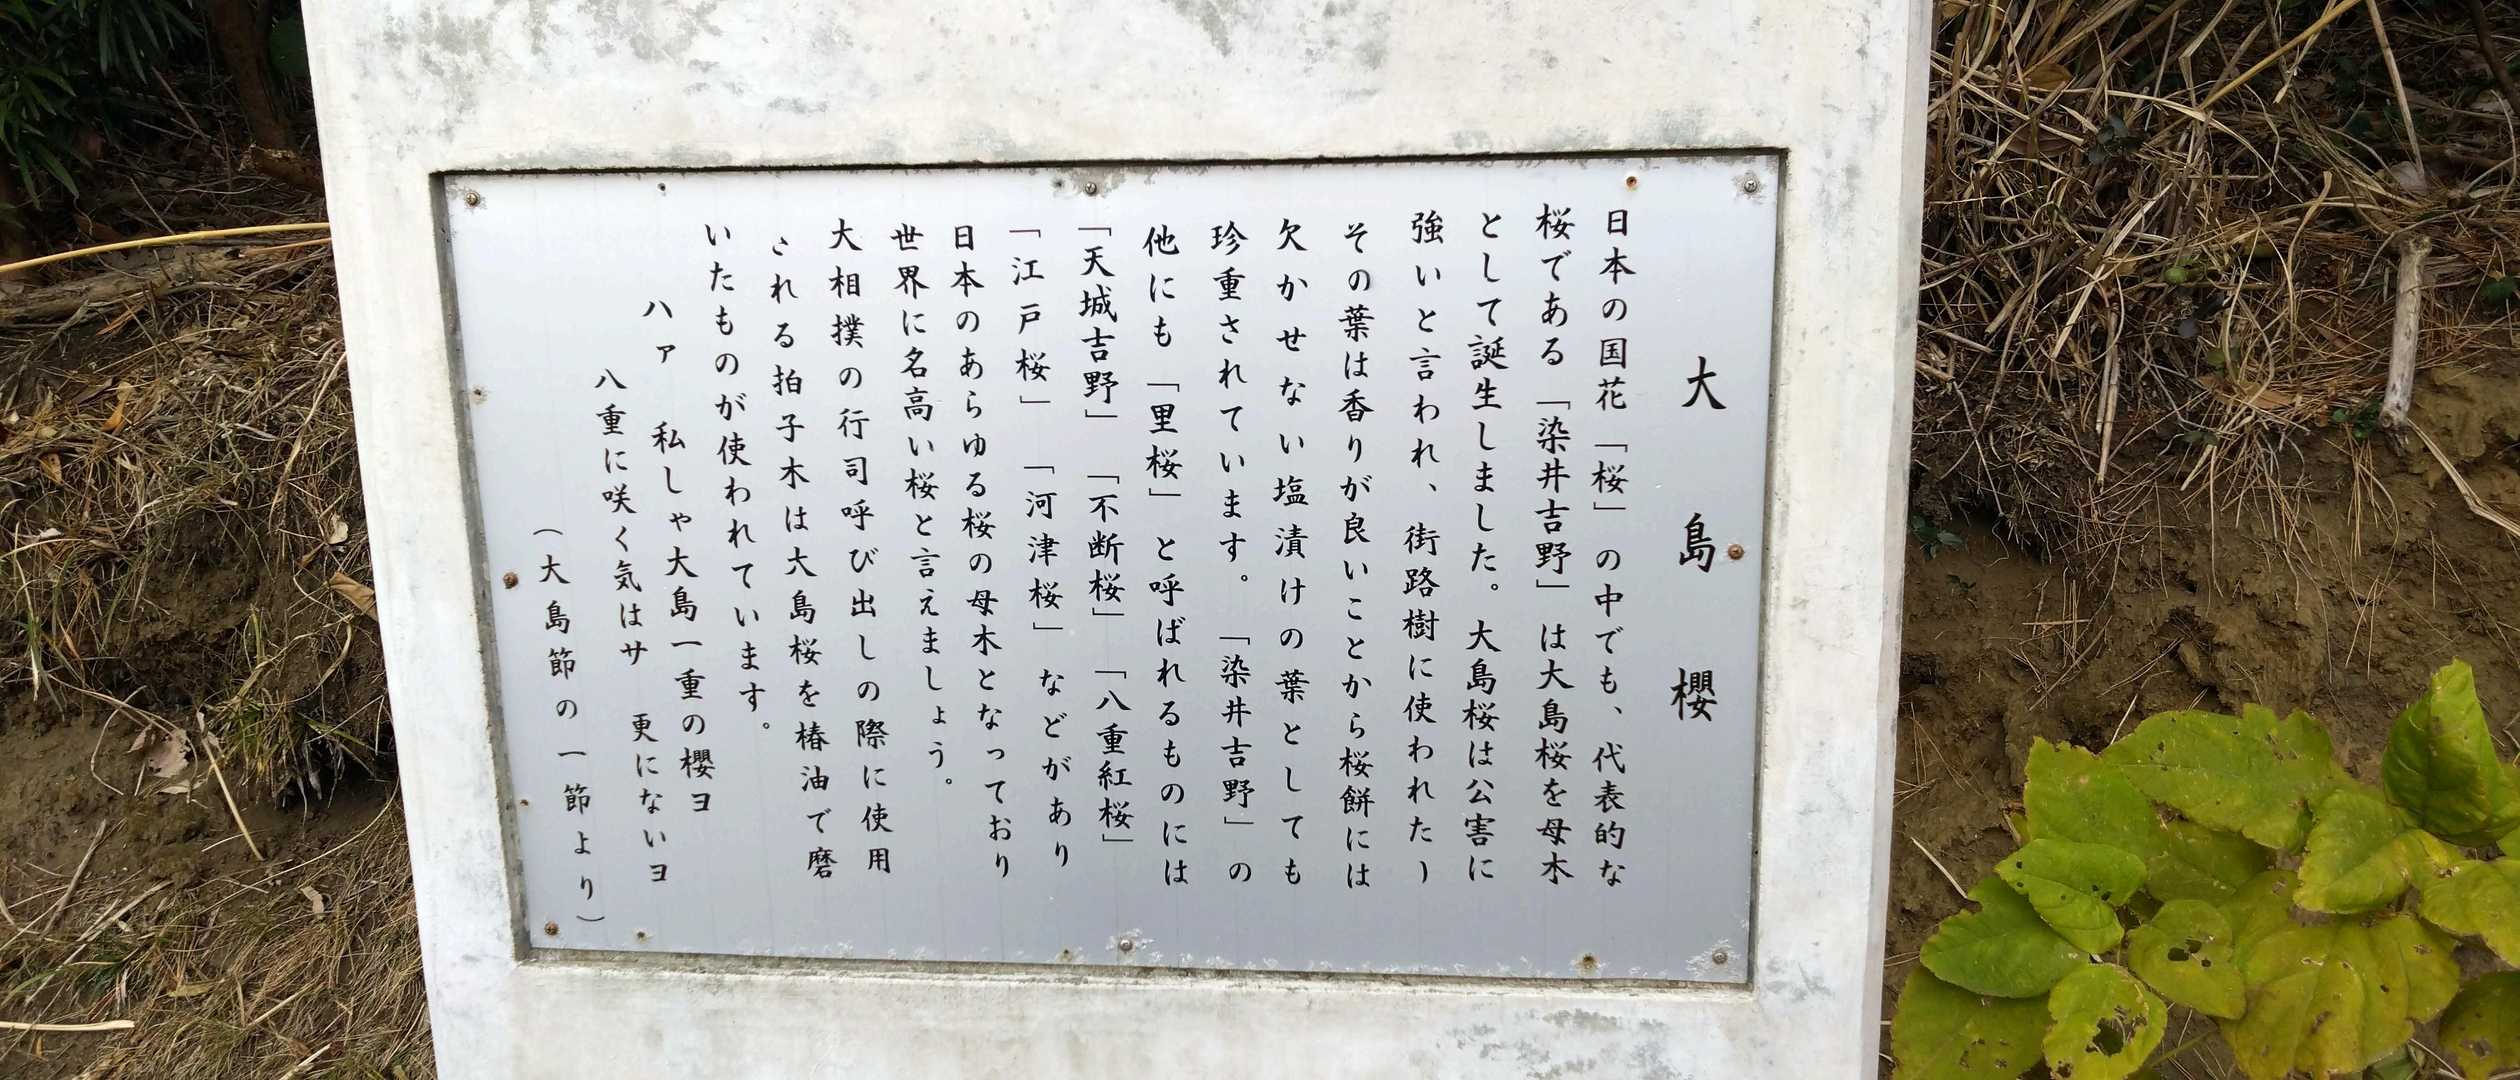 大島櫻
日本の国花「桜」の中でも、代表的な
桜である「染井吉野」は大島桜を母木
として誕生しました。大島桜は公害に
強いと言われ、街路樹に使われたり
その葉は香りが良いことから桜餅には
欠かせない塩漬けの葉としても
珍重されています。「染井吉野」の
他にも「里桜」と呼ばれるものには
「天城吉野」「不断桜」「八重紅桜」
「江戸桜」「河津桜」などがあり
日本のあらゆる桜の母木となっており
世界に名高い桜と言えましょう。
大相撲の行司呼び出しの際に使用
される拍子木は大島桜を椿油で磨
いたものが使われています。
ハァ 私しゃ大島一重の櫻ヨ
八重に咲く気はサ 更にないヨ
（大島節の一節より）